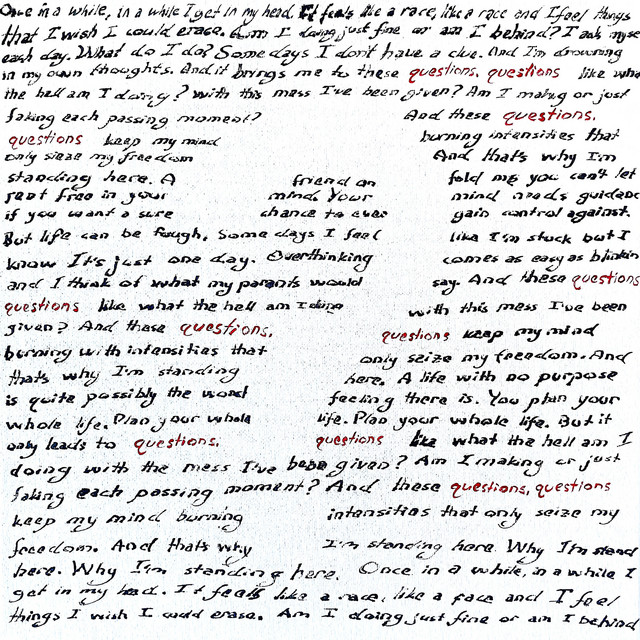 Once in a while, in a while I get in my head. It feels like a race, like a race and I feel things
that I wish I could erase. Am I doing just fine or am I behind? I ask myse
each day. What do I do? Some days I don't have a clue. And I'm drowning
in my own thoughts. And it brings me to these questions, questions like wha
the hell am I doing? With this mess I've been given? Am I making or just
faking each passing moment? And these questions,
questions keep my mind burning intensities that
only sieze my freedom And that's why I'm
standing here. A friend on told me you can't let
rent free in your mind. Your mind needs guidanc
if you want a sure chance to ever gain control against.
But life can be tough, some days I feel like I'm stuck but I
know It's just one day. Overthinking comes as easy as blinkin
and I think of what my parents would say. And these questions
questions like what the hell am I doing with this mess I've been
given? And these questions, questions keep my mind
burning with intensities that only seize my freedom. And
thats why I'm standing here. A life with no purpose
is quite possibly the worst feeling there is. You plan your
whole life. Plan your whole life. Plan your whole life. But it
only leads to questions, questions like what the hell am I
doing with the mess I've been given? Am I making or just
faking each passing moment? And these questions, questions
keep my mind burning intensities that only seize my
freedom. And thats why I'm standing here. Why I'm stand
here. Why I'm standing here. Once in a while, in a while I
get in my head. It feels like a race, like a race and I feel
things I wish I could erase. Am I doing just fine or am I behind